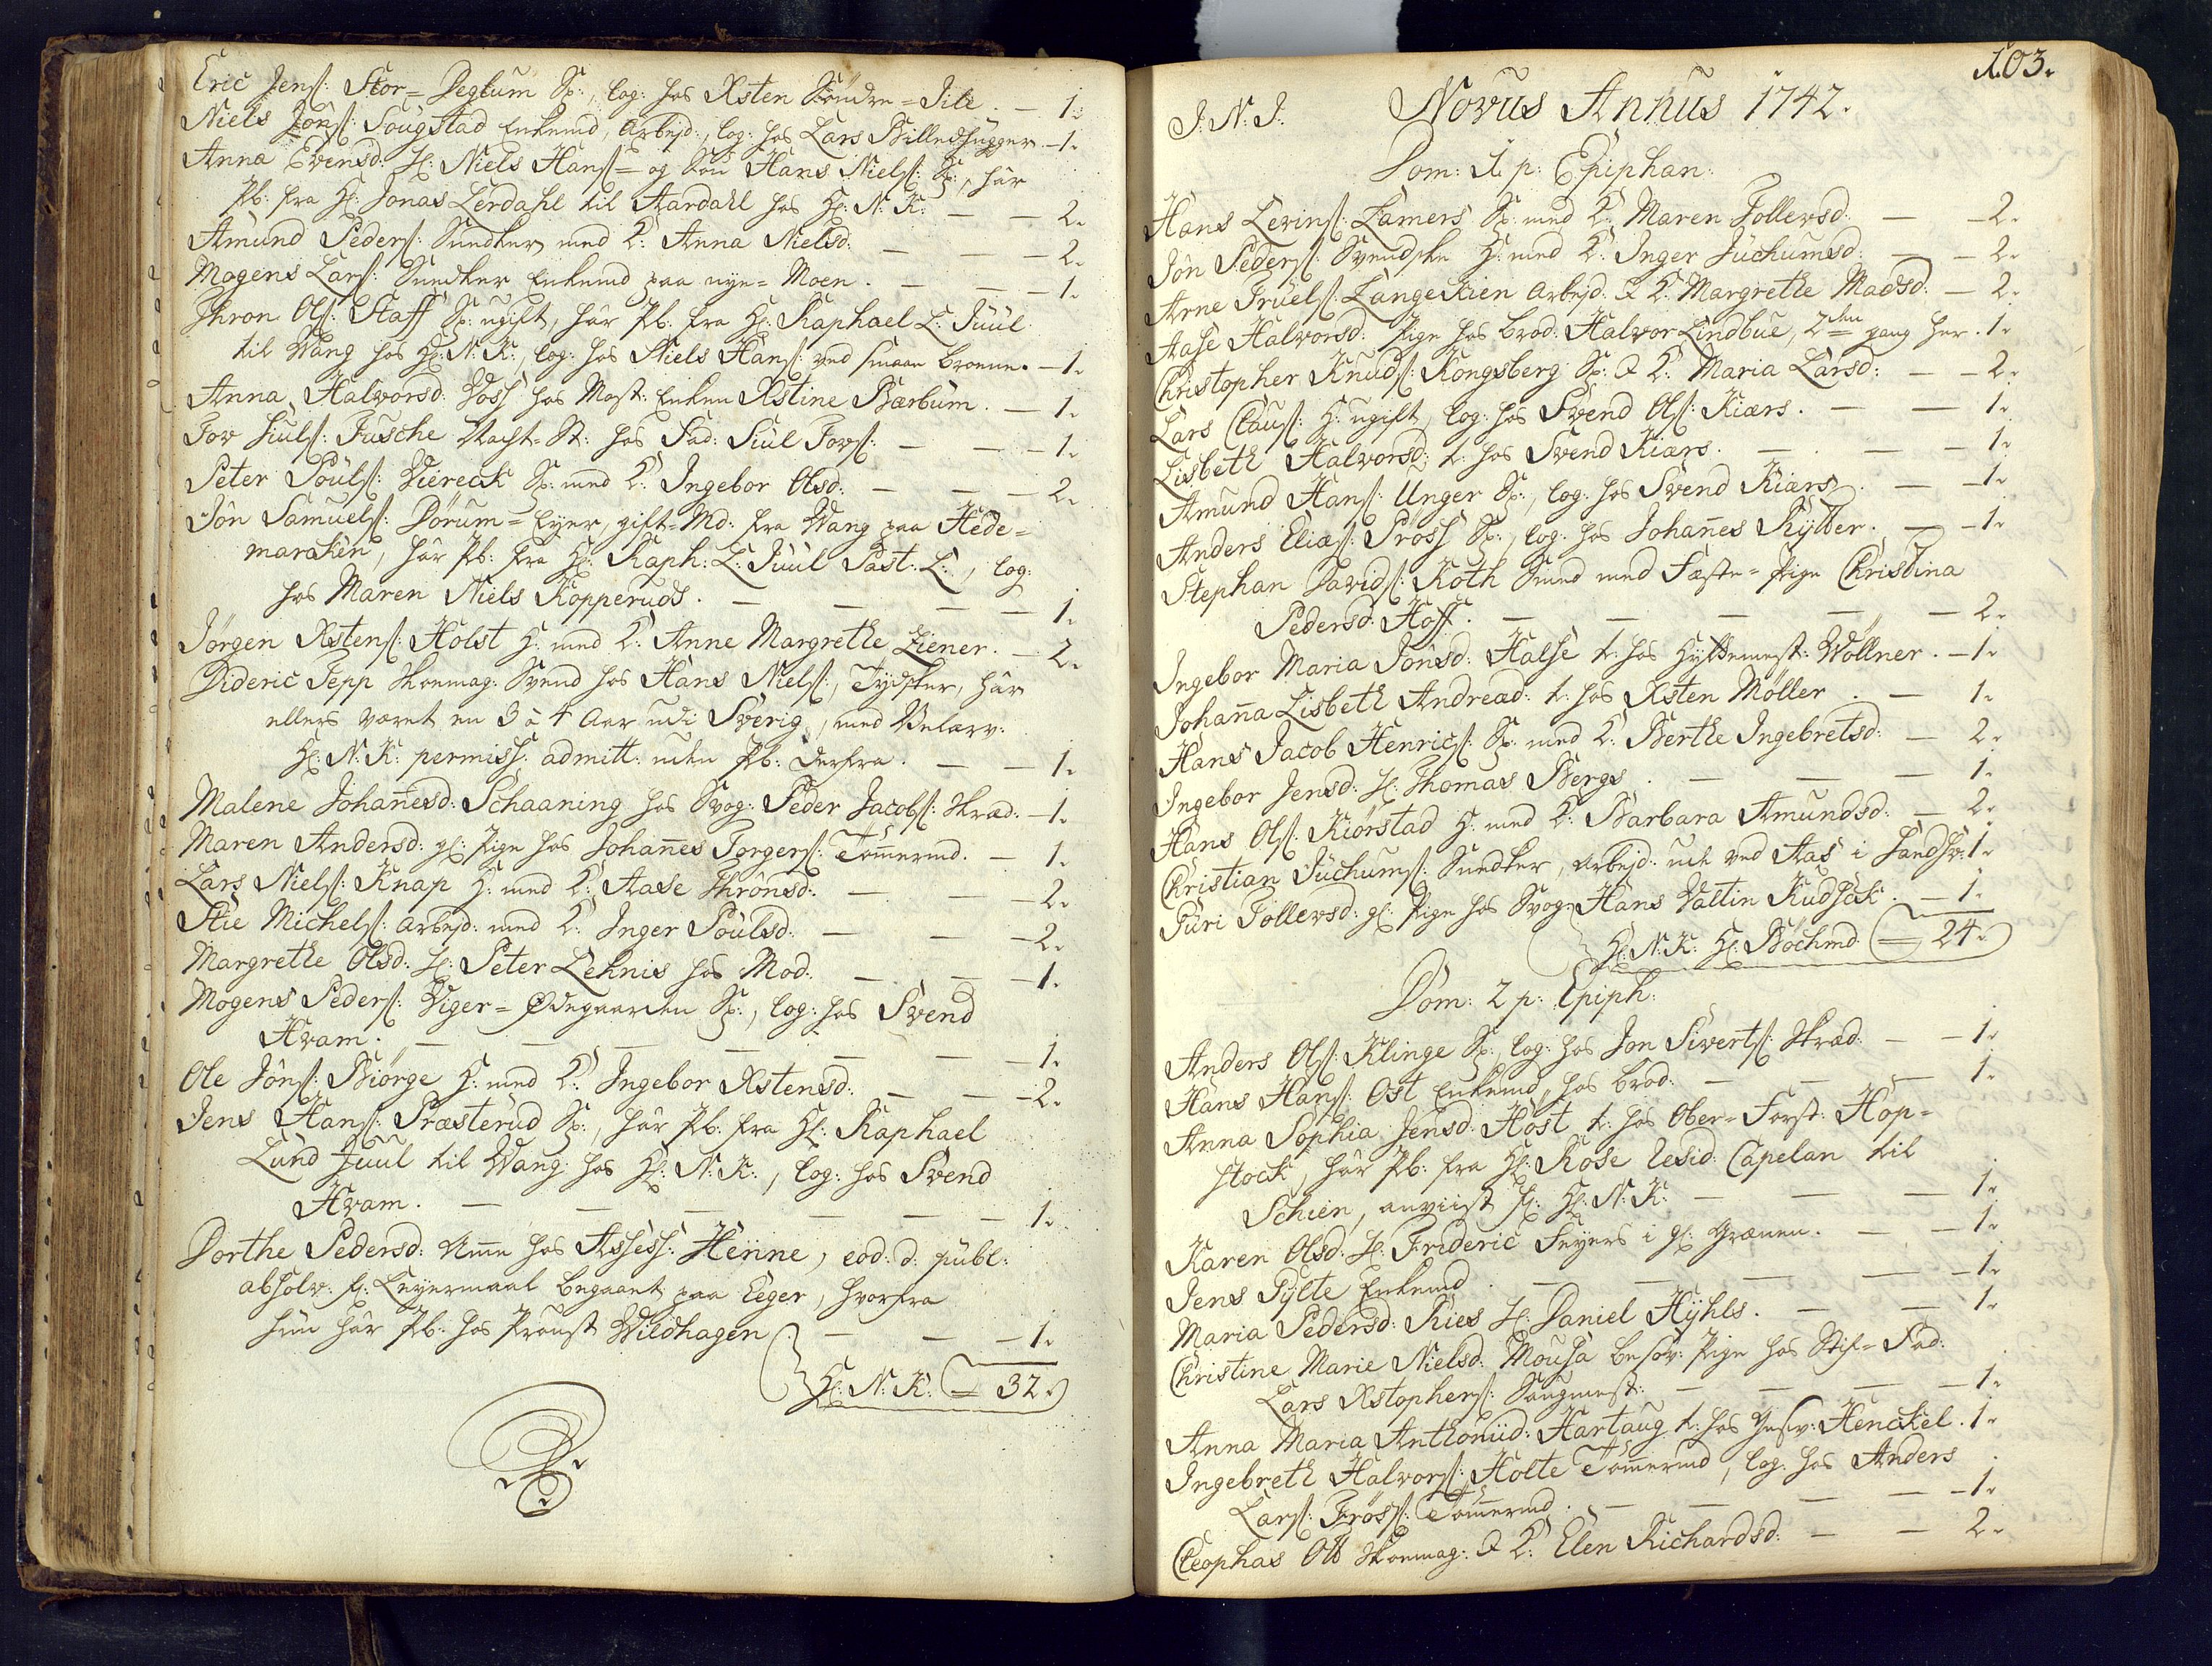 Eric Jenſ: Stor=Deglum Sp:, log: hos Xsten Söndre=Dik. — 1.
Niels Jönſ: Sougstad Enkemd, Arbejd:, log: hos Lars Billedhugger. — 1.
Anna Evensd: H: Niels Hanſ= og Sön Hans Nielſ: Sp:, har
Pb: fra Hr: Jonas Lerdahl til Aardahl hos Hr: N: K: — — 2.
Amund Pederſ: Snedker med K: Anna Nielsd: — — 2.
Mogens Larſ: Snedker Enkemd paa nye=Moen. — — 1.
Thron Olſ: Staff Sp: ugift, har Pb: fra Hr: Raphael L: Juul
til Wang hos Hr: N: K:, log: hos Niels Hanſ: ved smaae broerne. — 1.
Anna Halvorsd: Voss hos Most: Enken Xstine Bærbum. — 1.
Tov Siulſ: Fusche Vacht=St: hos Fad: Siul Tovſ: — — 1.
Peter Poulſ: Viereck Sp: med K: Ingebor Olsd: — — 2.
Jön Samuelſ: Dörum=Eyer, gift=Md: fra Wang paa Hede=
marcken, har Pb: fra Hr: Raph: L: Juul Past: L:, log:
hos Maren Niels Kopperuds. — — — 1.
Jörgen Xstenſ: Holst H: med K: Anne Margrethe Ziener. — 2.
Dideric Tepp Skoemag: Svend hos Hans Nielſ:, Tydsker, har
ellers været en 3 à 4 Aar udi Sverig, med
Hr: N: K: permiss: admitt: uden Pb: derfra. — — 1.
Malene Johanesd: Schaaning hos Svog: Peder Jacobſ: Skræd. — 1.
Maren Andersd: gl: Pige hos Johanes Torgerſ: Tömermd. — 1.
Lars Nielſ: Knap H: med K: Aase Thrönsd: — — 2.
Stie Michelſ: Arbejd: med K: Inger Poulsd: — — 2.
Margrethe Olsd: H: Peter Lehnis hos Mod: — — 1.
Mogens Pederſ: Viger=Ödegaarden Sp:, log: hos Svend
Hvam. — — — — — 1.
Ole Jönſ: Biörge H: med K: Ingebor Xstensd: — — 2.
Jens Hanſ: Præsterud Sp:, har Pb: fra Hr: Raphael
Lund Juul til Wang hos Hr: N: K:, log: hos Svend
Hvam. — — — — — 1.
Dorthe Pedersd: Ame hos Assess: Henne, eod: d: publ:
absolv: f: Leyermaal begaaet paa Eeger, hvorfra
hun har Pb: hos Provst Wildhagen — — 1.
Hr: N: K: = 32.
103.
J: N: J: Novus Annus 1742.
Dom: 1 p: Epiphan:
Hans Levinſ: Lamers Sp: med K: Maren Tollevsd: — — 2.
Jön Pederſ: Svendske H: med K: Inger Juchumsd: — — 2.
Arne Truelſ: Langeskien Arbejd: & K: Margrethe Madsd: — 2.
Aase Halvorsd: Pige hos Brod: Halvor Lindbue, 2den gang her. 1.
Christopher Knudſ: Kongsberg Sp: & K: Maria Larsd: — — 2.
Lars Clauſ: H: ugift, log: hos Svend Olſ: Kiærs. — — 1.
Lisbeth Halvorsd: t: hos Svend Kiærs. — — — 1.
Amund Hanſ: Unger Sp:, log: hos Svend Kiærs. — — 1.
Anders Eliæſ: Pröss Sp:, log: hos Johanes Rytter. — — 1.
Stephan Davidſ: Roth Smed med Fæste=Pige Christina
Pedersd: Hoff. — — — — — 2.
Ingebor Maria Jonsd: Halse t: hos Hyttemest: Wöllner. — 1.
Johana Lisbeth Andread: t: hos Xsten Möller. — 1.
Hans Jacob Henricſ: Sp: med K: Berthe Ingebretsd: — 2.
Ingebor Jensd: H: Thomas Bergs. — — — 1.
Hans Olſ: Kiörstad H: med K: Barbara Amundsd: — 2.
Christian Juchumſ: Snedker, Arbejd: ude ved Aas i Sandſv: 1.
Turi Tollevsd: gl: Pige hos Svog: Hans Valtin Kudsck. — 1.
Hr: N: K: Hr: Bochmd. = 24.
Dom: 2 p: Epiph:
Anders Olſ: Klinge Sp:, log: hos Jon Sivertſ: Skræd: — — 1.
Hans Hanſ: Ost Enkemd, hos Brod: — — — 1.
Anna Sophia Jensd: Höst t: hos Ober=Forst: Hop=
stock, har Pb: fra Hr: Rose Resid: Capelan til
Schien, anviist f: Hr: N: K: — — — 1.
Karen Olsd: H: Frideric Feyers i gl: Grænen. — — 1.
Jens Pylte Enkemd. — — — — 1.
Maria Pedersd: Ries H: Daniel Hyhls. — — 1.
Christine Marie Nielsd: Mousa besov: Pige hos Stif=Fad:
Lars Xstopherſ: Saugmest: — — — — 1.
Anna Maria Anthoniid: Hartaug t: hos Henckel. 1.
Ingebreth Halvorſ: Holte Tömermd, log: hos Anders
Larſ: Frösſ: Tömermd. — — — — 1.
Cleophas Ott Skoemag: & K: Elen Richardsd: — — 2.